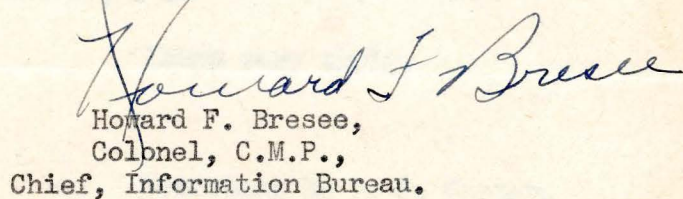 Howard F Bresee
Howard F. Bresee,
Colonel, C.M.P.,
Chief, Information Bureau.